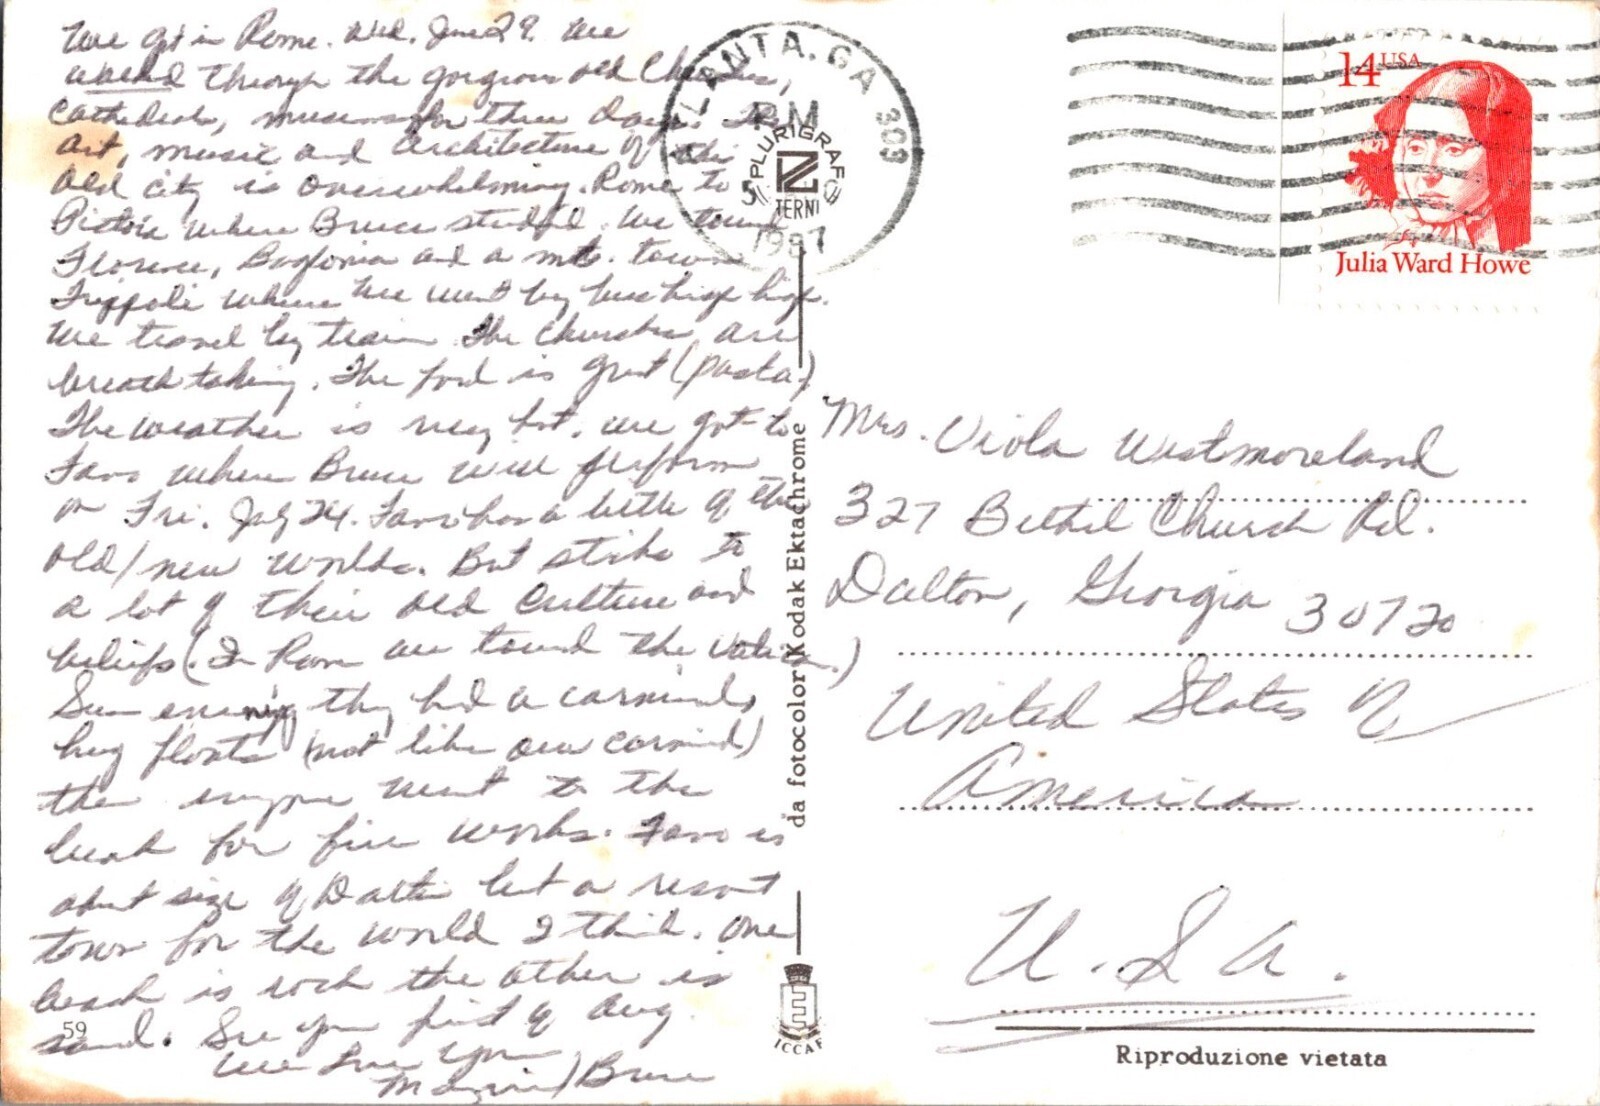 We got in Rome. Wed. June 29. We
walked through the gorgeous old Churches,
Cathedrals, museums for three days. The
art, music and architecture of this
old city is overwhelming. Rome to
Pistoia where Bruce studied. We toured
Florence, and a mt. town
where we went by bus high high.
We travel by train. The Churches are
breath taking. The food is great (pasta)
The weather is very hot. We got to
Fano where Bruce will perform
on Fri. July 24. Fano has a little of the
old/new worlds. But sticks to
a lot of their old culture and
beliefs (In Rome we toured the Vatican.)
Sun evening they had a carnival,
hug floats (not like our carnival)
then everyone went to the
beach for fire works. Fano is
about size of Dalton but a resort
town for the world I think. One
beach is rock the other is
sand. See you first of Aug
We Love You
Bruce
59
ATLANTA, GA 303
PM
5
1987
PLURIGRAF
TERNI
14 USA
Julia Ward Howe
da fotocolor Kodak Ektachrome
Mrs. Viola Westmoreland
327 Bethel Church Rd.
Dalton, Georgia 30720
United States of
America
U.S.A.
ICCAF
Riproduzione vietata